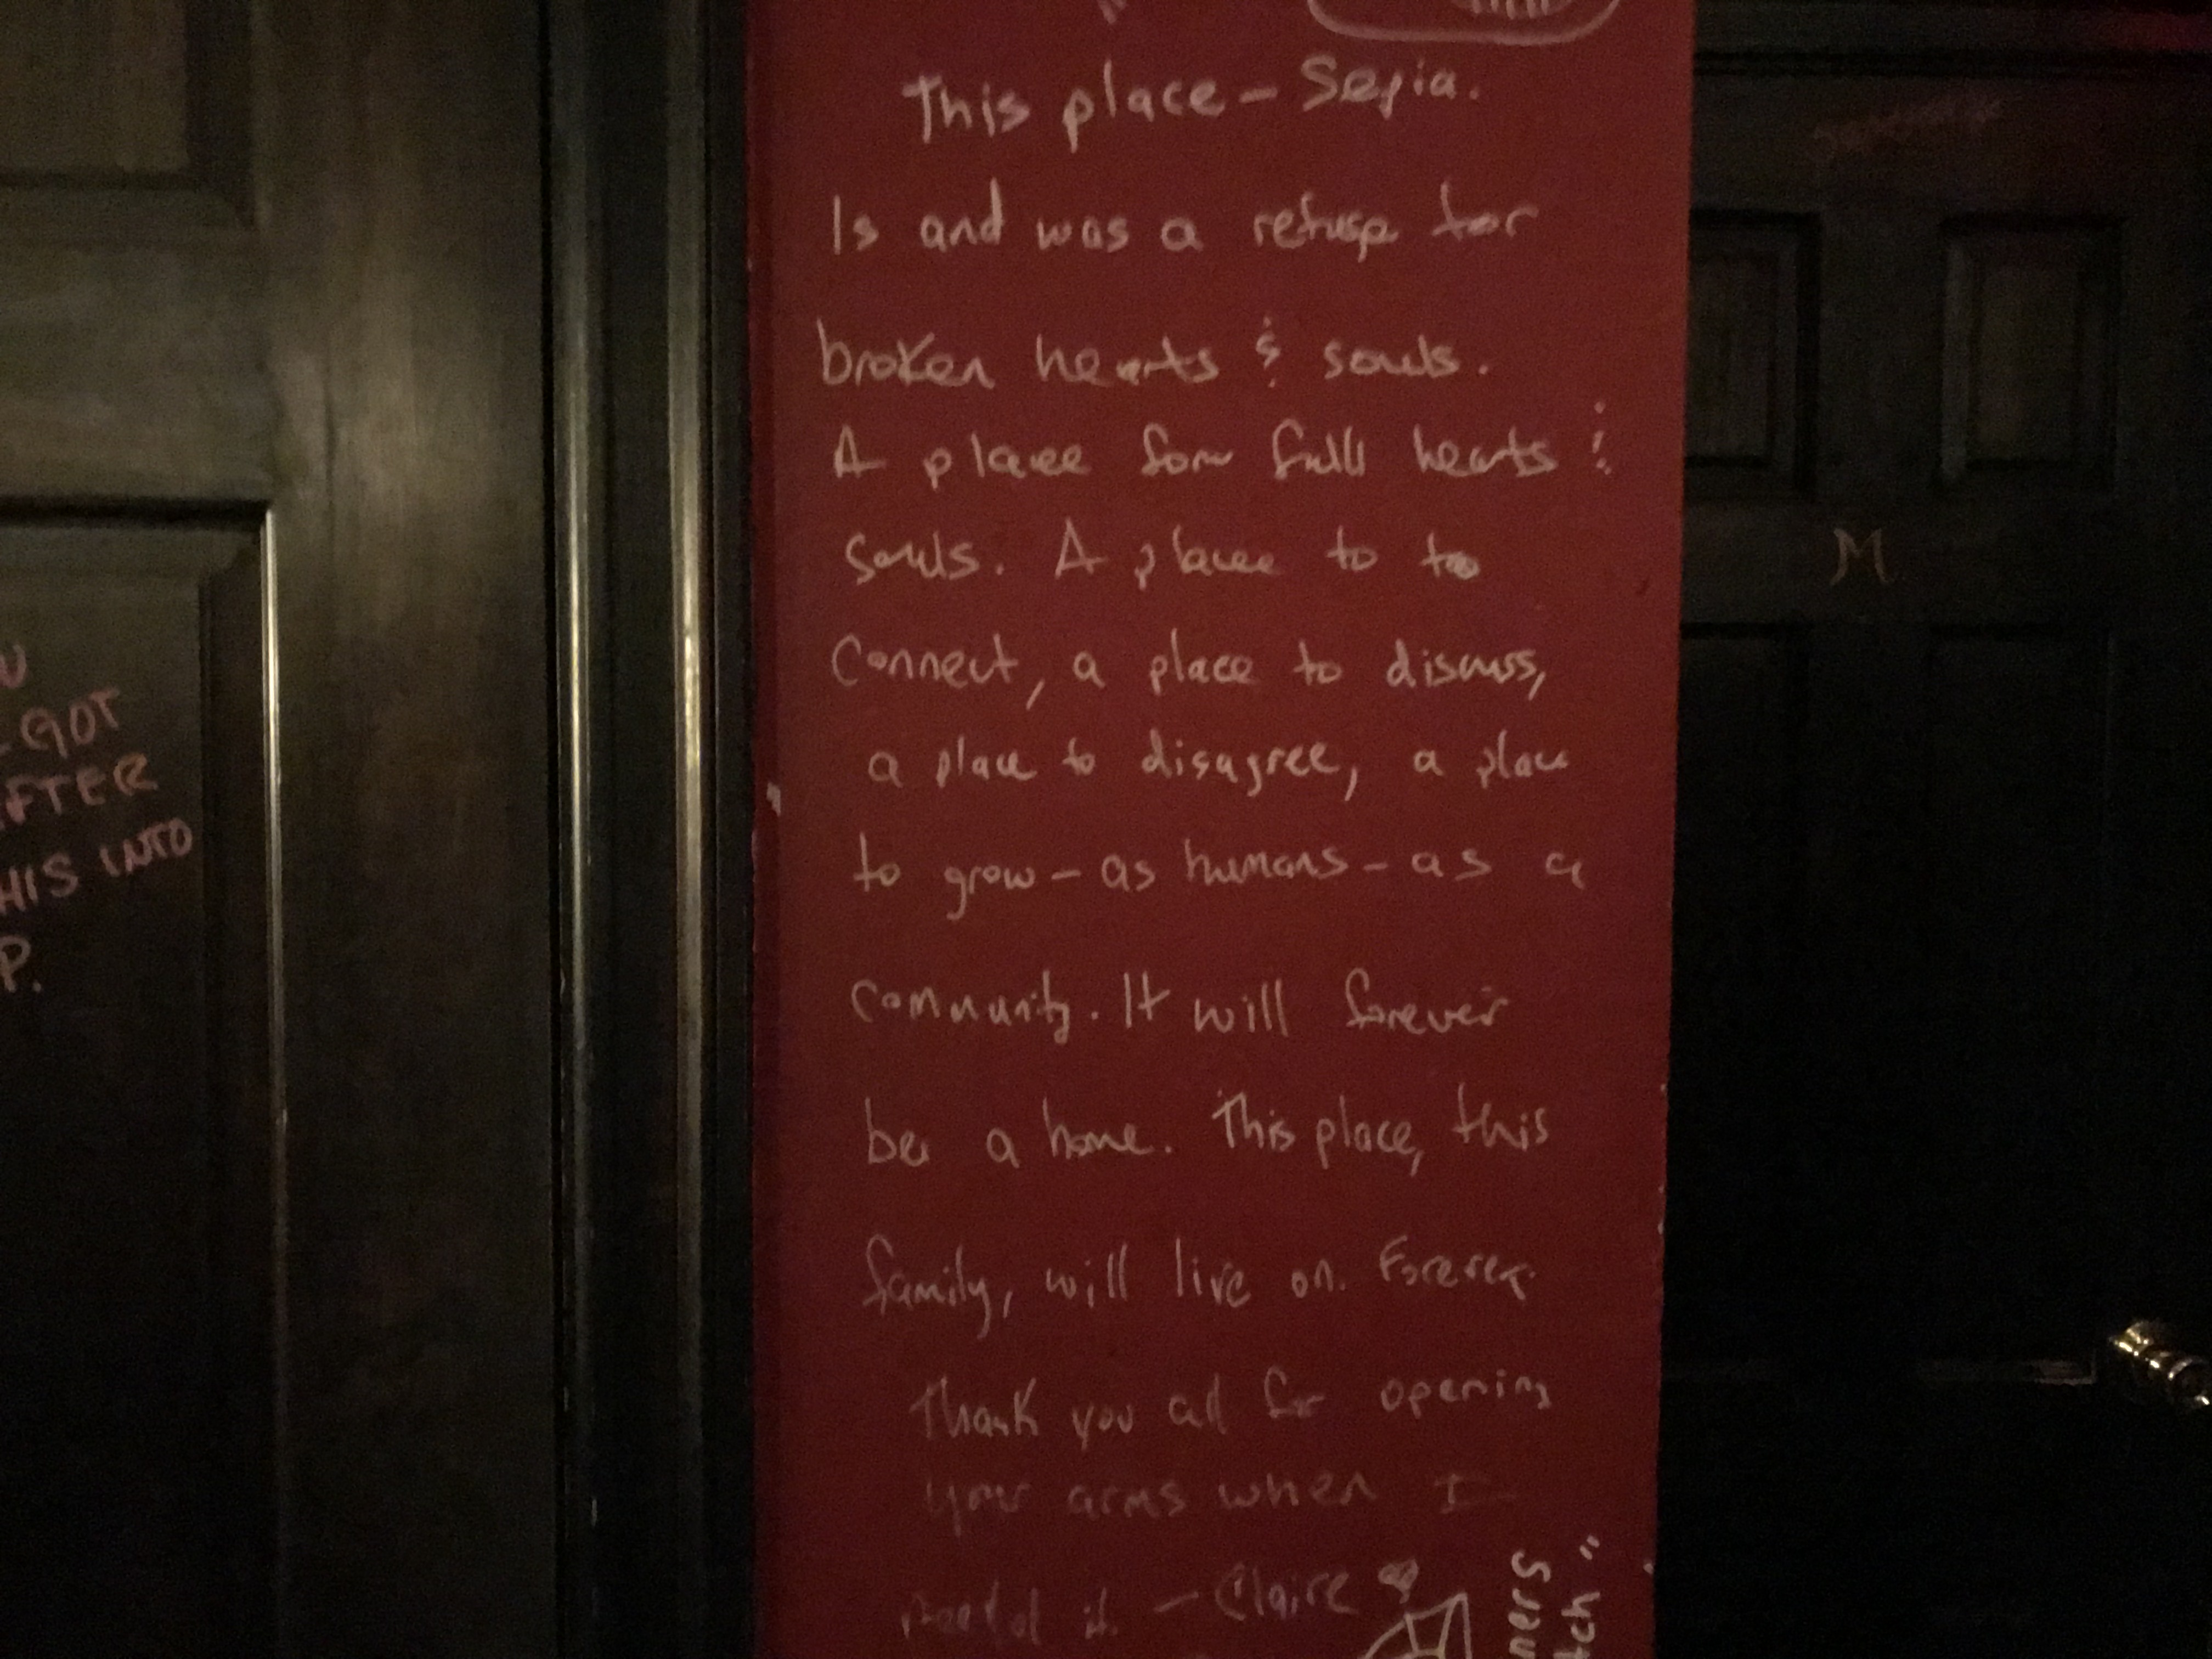 This place - Sepia.
Is and was a refuge for
broken hearts & souls.
A place for full hearts &
souls. A place to to
connect, a place to discuss,
a place to disagree, a place
to grow - as humans - as a
community. It will forever
be a home. This place, this
family, will live on. Forever
Thank you all for opening
your arms when I
needed it. - Claire
GOT
HIS INTO
P.
M